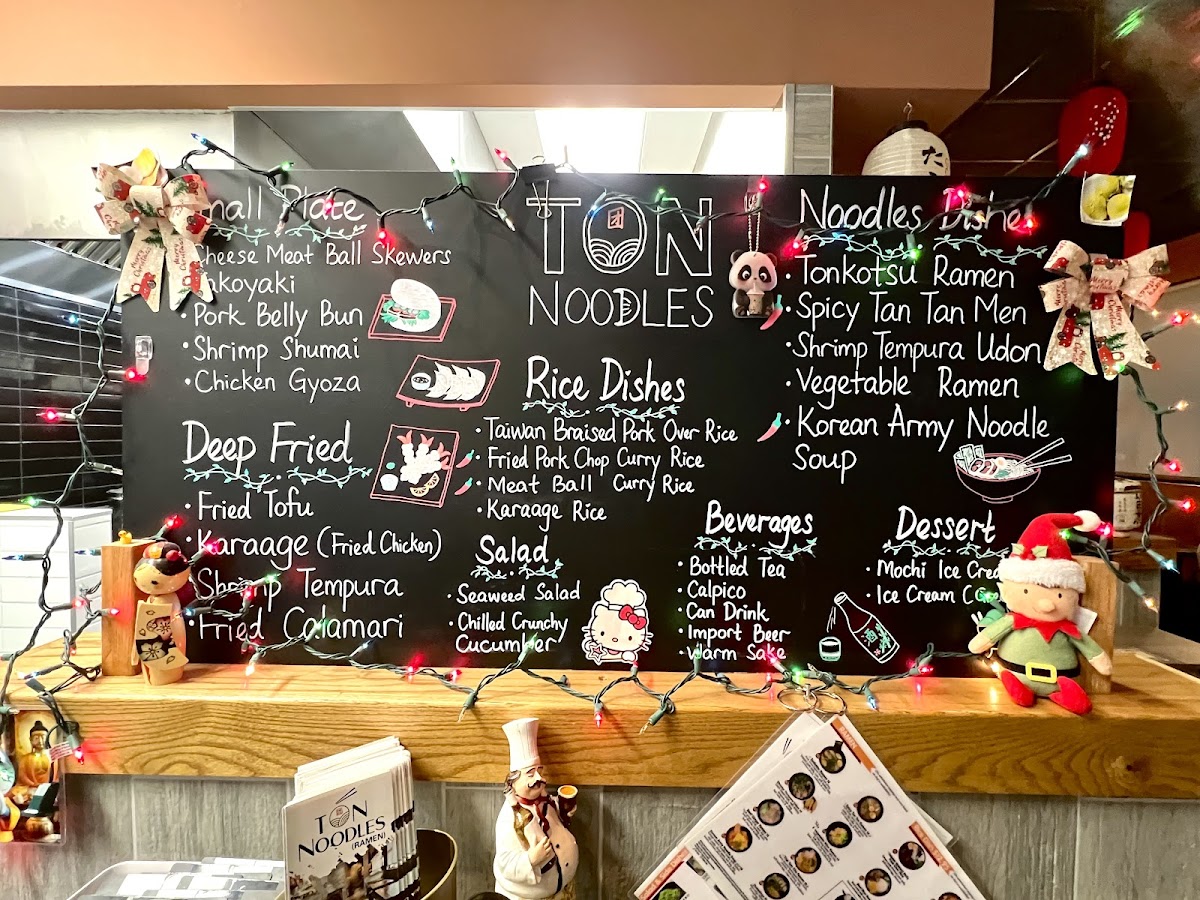 Small Plate
Cheese Meat Ball Skewers
Takoyaki
· Pork Belly Bun
· Shrimp Shumai
· Chicken Gyoza
Deep Fried
· Fried Tofu
· Karaage (Fried Chicken)
· Shrimp Tempura
· Fried Calamari
TON
NOODLES
Rice Dishes
· Taiwan Braised Pork Over Rice
· Fried Pork Chop Curry Rice
· Meat Ball Curry Rice
· Karaage Rice
Salad
· Seaweed Salad
· Chilled Crunchy
Cucumber
Beverages
· Bottled Tea
· Calpico
· Can Drink
· Import Beer
· Warm Sake
Noodles Dishes
· Tonkotsu Ramen
· Spicy Tan Tan Men
· Shrimp Tempura Udon
· Vegetable Ramen
· Korean Army Noodle
Soup
Dessert
· Mochi Ice Cream
· Ice Cream
酒
た
TON
NOODLES
(RAMEN)